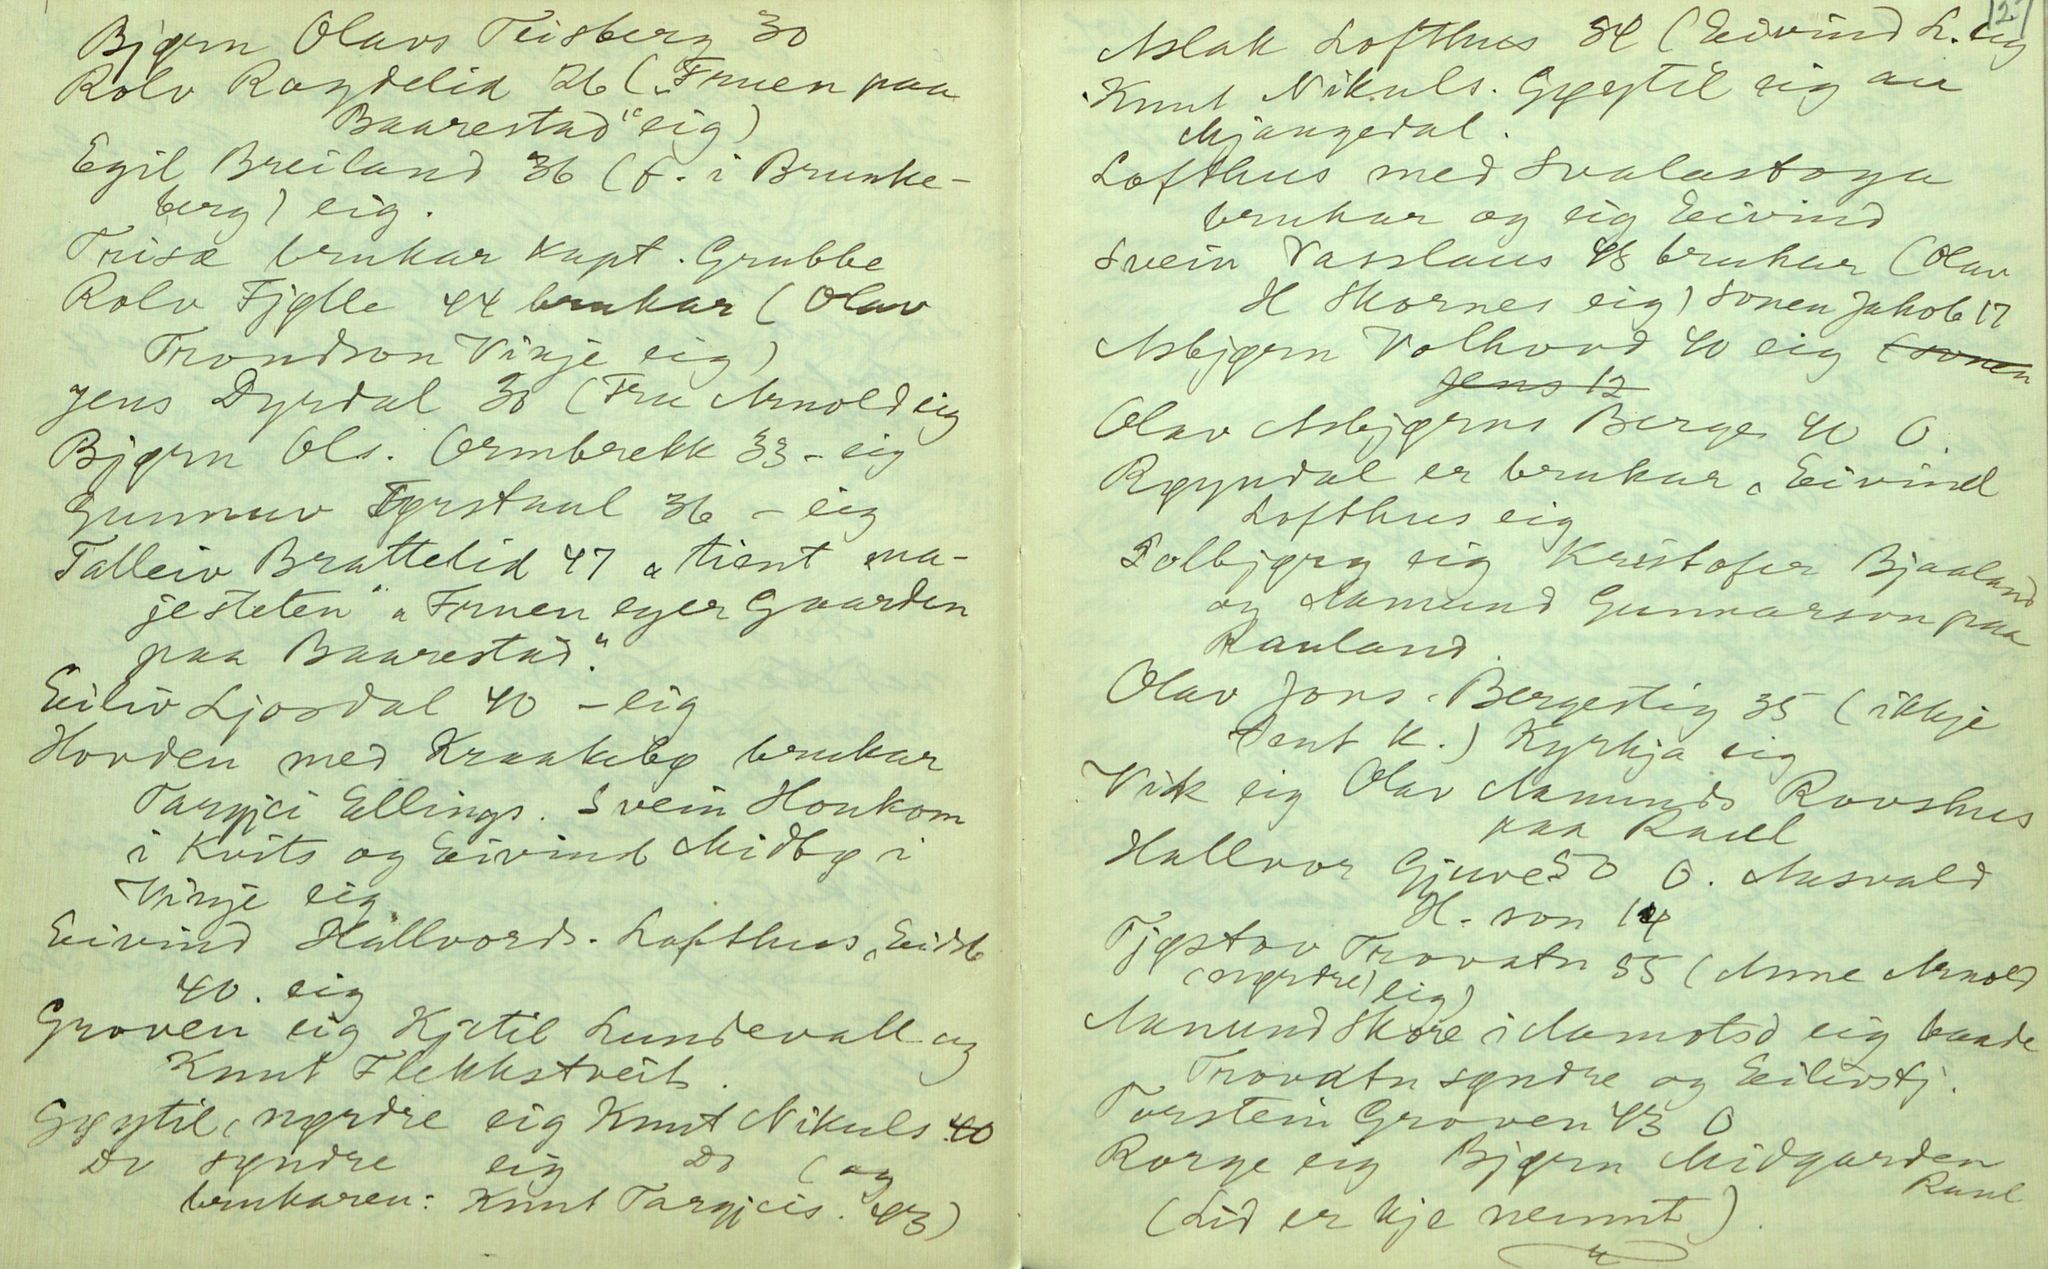 Bjørn Olavs Teisberg 30
Rolv Roydelid 26 („Fruen paa
Baarestad" eig)
Egil Breiland 36 (f. i Brunke-
berg) eig.
Trisæ brukar Kapt. Grubbe
Rolv Fjølle 44 brukar (Olav
Trondson Vinje eig)
Jens Dyrdal 30 (Fru Arnold eig
Bjørn Ols. Ormbrekk 33 - eig
Gunnuv Tyrstaul 36 - eig
Talleiv Brattelid 47 „tient ma-
jesteten" „Fruen eyer Gaarden
paa Baarestad."
Eiliv Ljosdal 40 - eig
Hovden med Kraakebø brukar
Targjei Ellings. Svein Honkom
i Kvits og Eivind Midbø i
Vinje eig
Eivind Hallvords. Lofthus, Eidsb
40. eig
Groven eig Kjetil Lundevall og
Knut Flekkstveit.
Gøytil, nørdre eig Knut Nikuls 40
Do syndre eig Do (og
brukaren: Knut Targjeis. 43)
127
Aslak Lofthus 54 (Eivind L. eig
Knut Nikuls. Gøytil eig au
Mjaugedal.
Lofthus med Svalastoga
brukar og eig Eivind
Svein Vasslaus 48 brukar (Olav
H Skornes eig) sonen Jakob 17
Asbjørn Volhovd 40 eig (sonen
Jens 12
Olav Asbjørns Berge 40 O.
Røyndal er brukar, Eivind
Lofthus eig
Solbjørg eig Kristofer Bjaaland
og Aamund Gunnarson paa
Rauland.
Olav Jons. Bergestig 35 (ikkje
tent K.) Kyrkja eig
Vik eig Olav Aamunds Rovshus
paa Raul
Hallvor Gjuve 50 O. Aasvald
H- son 14
Tjøstov Trovatn 55 (Anne Arnold
(nørdre) eig)
Aanund Skore i Aamotsd eig baade
Trovatn syndre og Eilivstj.
Torstein Groven 43 O
Rorge eig Bjørn Midgarden
Raul
(Lid er kje nemnt).